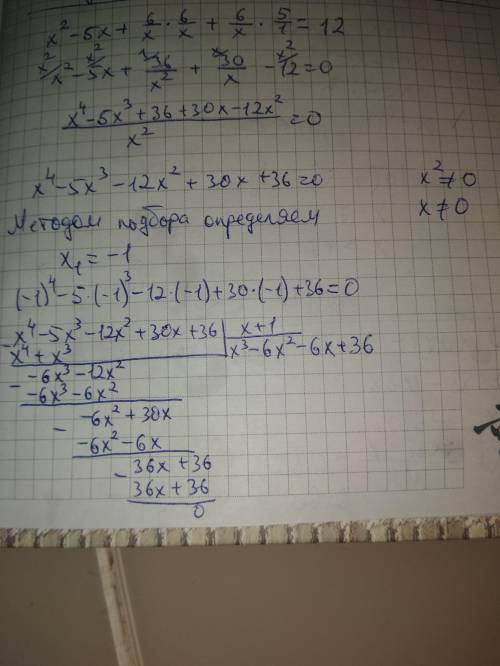 x² - 5x + 6/x · 6/x + 6/x · 5/1 = 12
x²/ x² - x²/ 5x + 1/ 36/x² + x/ 30/x - x²/ 12 = 0
(x⁴ - 5x³ + 36 + 30x - 12x²)/x² = 0
x⁴ - 5x³ - 12x² + 30x + 36 = 0
x² ≠ 0
x ≠ 0
Методом подбора определяем
x₁ = -1
(-1)⁴ - 5·(-1)³ - 12·(-1) + 30·(-1) + 36 = 0
- x⁴ - 5x³ - 12x² + 30x + 36 | x + 1
x⁴ + x³ | x³ - 6x² - 6x + 36
- -6x³ - 12x²
-6x³ - 6x²
- -6x² + 30x
-6x² - 6x
- 36x + 36
36x + 36
0